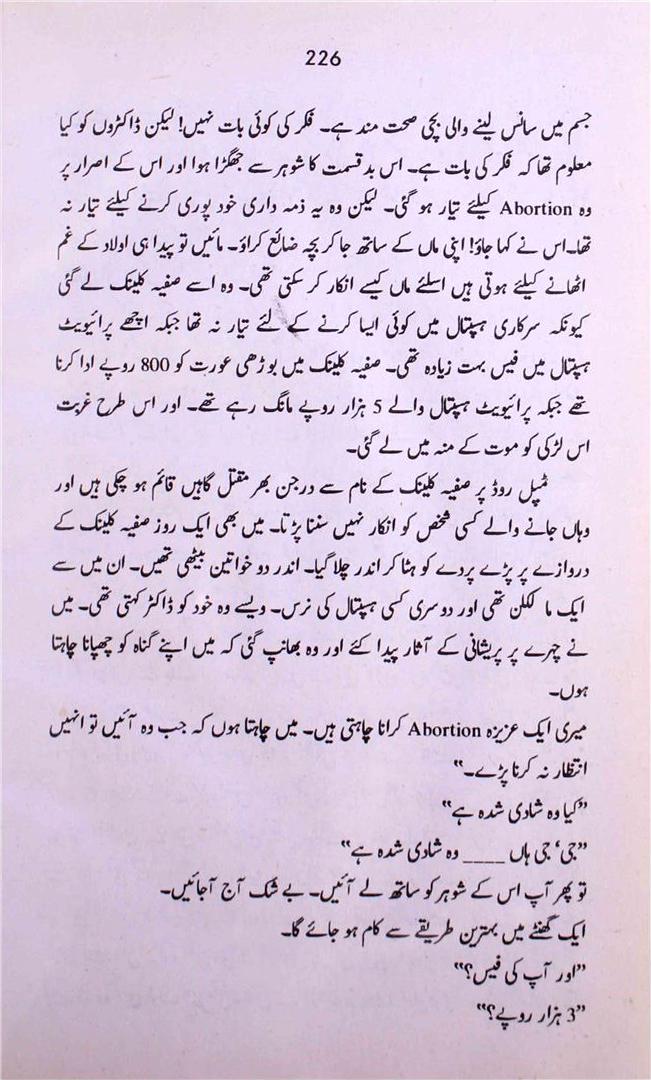 226
جسم میں سانس لینے والی بچی صحت مند ہے۔ فکر کی کوئی بات نہیں! لیکن ڈاکٹروں کو کیا
معلوم تھا کہ فکر کی بات ہے۔ اس بدقسمت کا شوہر سے جھگڑا ہوا اور اس کے اصرار پر
وہ Abortion کیلئے تیار ہو گئی۔ لیکن وہ یہ ذمہ داری خود پوری کرنے کیلئے تیار نہ
تھا۔ اس نے کہا جاؤ! اپنی ماں کے ساتھ جا کر بچہ ضائع کراؤ۔ مائیں تو پیدا ہی اولاد کے غم
اٹھانے کیلئے ہوتی ہیں اسلئے ماں کیسے انکار کر سکتی تھی۔ وہ اسے صفیہ کلینک لے گئی
کیونکہ سرکاری ہسپتال میں کوئی ایسا کرنے کے لئے تیار نہ تھا جبکہ اچھے پرائیویٹ
ہسپتال میں فیس بہت زیادہ تھی۔ صفیہ کلینک میں بوڑھی عورت کو 800 روپے ادا کرنا
تھے جبکہ پرائیویٹ ہسپتال والے 5 ہزار روپے مانگ رہے تھے۔ اور اس طرح غربت
اس لڑکی کو موت کے منہ میں لے گئی۔
ٹمپل روڈ پر صفیہ کلینک کے نام سے درجن بھر مقتل گاہیں قائم ہو چکی ہیں اور
وہاں جانے والے کسی شخص کو انکار نہیں سننا پڑتا۔ میں بھی ایک روز صفیہ کلینک کے
دروازے پر پڑے پردے کو ہٹا کر اندر چلا گیا۔ اندر دو خواتین بیٹھی تھیں۔ ان میں سے
ایک مالکن تھی اور دوسری کسی ہسپتال کی نرس۔ ویسے وہ خود کو ڈاکٹر کہتی تھی۔ میں
نے چہرے پر پریشانی کے آثار پیدا کئے اور وہ بھانپ گئی کہ میں اپنے گناہ کو چھپانا چاہتا
ہوں۔
میری ایک عزیزہ Abortion کرانا چاہتی ہیں۔ میں چاہتا ہوں کہ جب وہ آئیں تو انہیں
انتظار نہ کرنا پڑے۔"
"کیا وہ شادی شدہ ہے"
"جی' جی ہاں ____ وہ شادی شدہ ہے"
تو پھر آپ اس کے شوہر کو ساتھ لے آئیں۔ بے شک آج آجائیں۔
ایک گھنٹے میں بہترین طریقے سے کام ہو جائے گا۔
"اور آپ کی فیس؟"
"3 ہزار روپے؟"